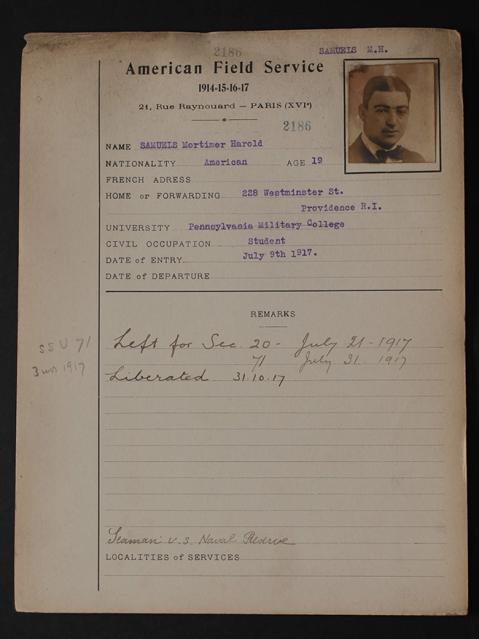 2186
SAMUELS M.H.
American Field Service
1914-15-16-17
21, Rue Raynouard — PARIS (XVIe)
2186
NAME SAMUELS Mortimer Harold
NATIONALITY American AGE 19
FRENCH ADRESS
HOME or FORWARDING 228 Westminster St.
Providence R.I.
UNIVERSITY Pennsylvania Military College
CIVIL OCCUPATION Student
DATE of ENTRY July 9th 1917.
DATE of DEPARTURE
REMARKS
SSU 71
3 1917
Left for Sec. 20 - July 21 - 1917
71 July 31. 1917
Liberated 31.10.17
Seaman U.S. Naval Reserve
LOCALITIES of SERVICES